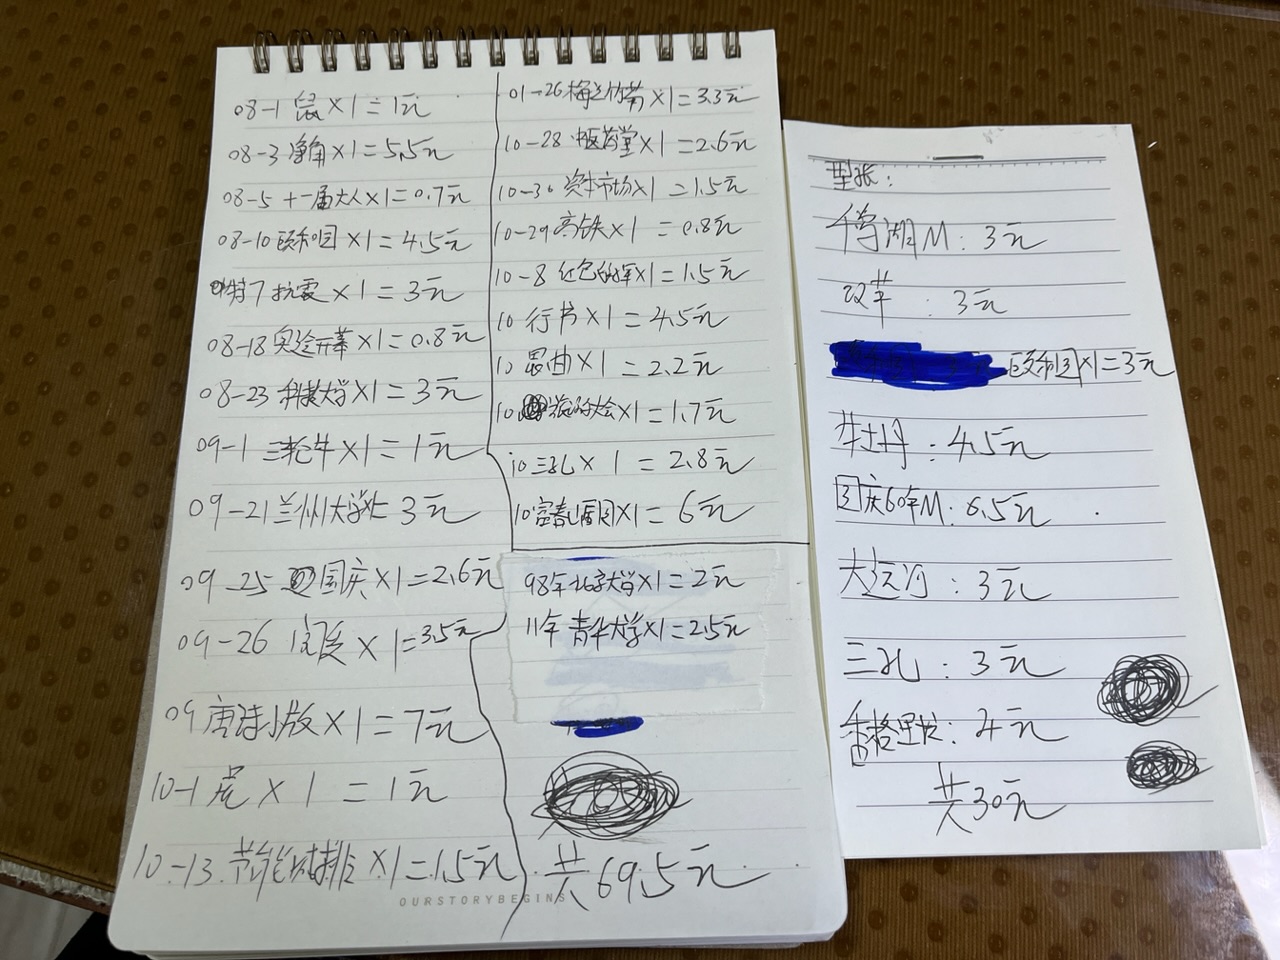 08-1 鼠×1=1元
08-3 净角×1=5.5元
08-5 十一届大人×1=0.7元
08-10 颐和园×1=4.5元
特7 抗震×1=3元
08-18 奥运开幕×1=0.8元
08-23 科技大学×1=3元
09-1 三轮牛×1=1元
09-21 兰州大学×1 3元
09-25 国庆×1=2.6元
09-26 ×1=3.5元
09 唐诗小版×1=7元
10-1 虎×1=1元
10-13 节能减排×1=1.5元
01-26 梅兰竹菊×1=3.3元
10-28 中医药堂×1=2.6元
10-30 资本市场×1=1.5元
10-29 高铁×1=0.8元
10-8 红色的军×1=1.5元
10 行书×1=4.5元
10 昆曲×1=2.2元
10 ×1=1.7元
10 三孔×1=2.8元
10 富春山居图×1=6元
98年北京大学×1=2元
11年 青华大学×1=2.5元
共69.5元
OURSTORYBEGINS
型张:
千岛湖M:3元
:3元
颐和园×1=3元
牡丹:4.5元
国庆60年M:6.5元
大运河:3元
三孔:3元
香格里拉:4元
共30元